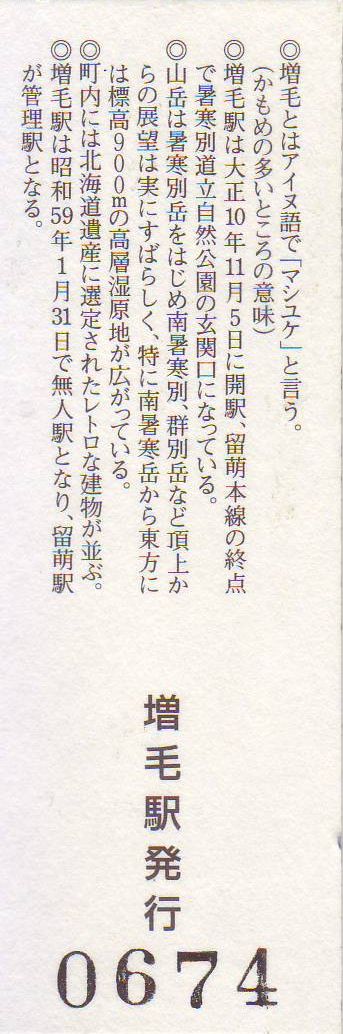 ◎増毛とはアイヌ語で「マシユケ」と言う。
(かもめの多いところの意味)
◎増毛駅は大正10年11月5日に開駅、留萌本線の終点
で暑寒別道立自然公園の玄関口になっている。
◎山岳は暑寒別岳をはじめ南暑寒別、群別岳など頂上か
らの展望は実にすばらしく、特に南暑寒岳から東方に
は標高900mの高層湿原地が広がっている。
◎町内には北海道遺産に選定されたレトロな建物が並ぶ。
◎増毛駅は昭和59年1月31日で無人駅となり、留萌駅
が管理駅となる。
増毛駅発行
0674